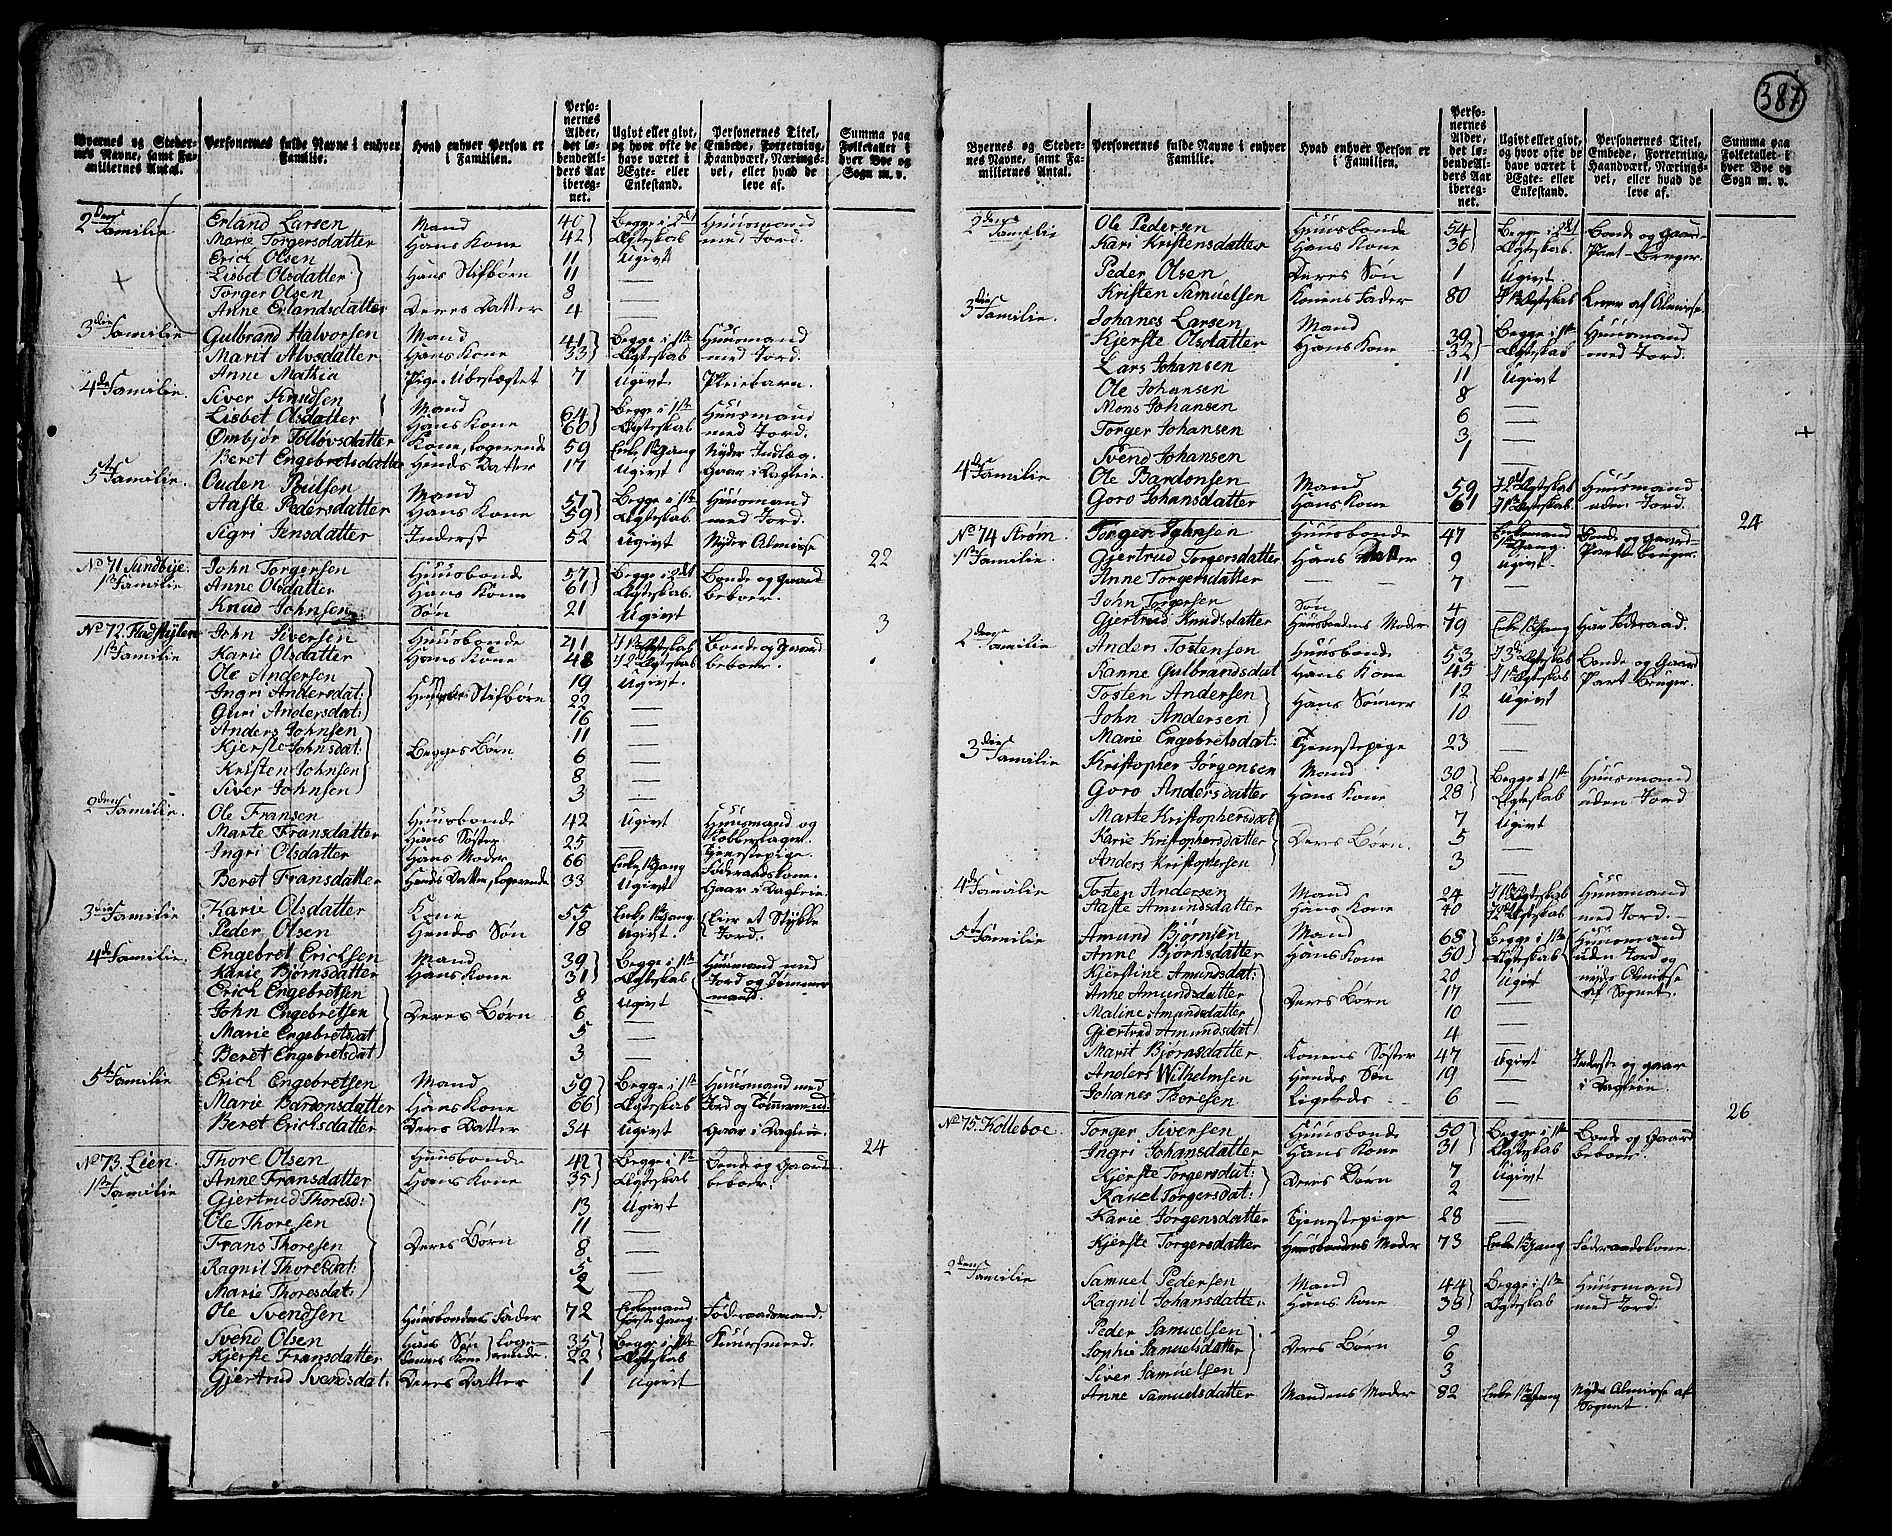 387
Byernes og Stedernes Navne, samt Familiernes Antal.
Personernes fulde Navne i enhver Familie.
Hvad enhver Person er i Familien.
Personernes Alder, det løbende Alders Aar iberegnet.
Ugivt eller givt, og hvor ofte de have været i Ægte- eller Enkestand.
Personernes Titel, Embede, Forretning, Haandværk, Næringsvei, eller hvad de leve af.
Summa paa Folketallet i hver Bye og Sogn m. v.
2den Familie Erland Larsen Mand 40 Begge i 2det Huusmand
Marie Torgersdatter Hans Kone 42 Ægteskab med Jord.
Erich Olsen 11 Ugivt
Lisbet Olsdatter Hans Stifbørn 11 —
Torger Olsen 8 —
Anne Erlandsdatter Deres Datter 4 —
3die Familie Gulbrand Halvorsen Mand 41 Begge i 1ste Huusmand
Marit Alvsdatter Hans Kone 33 Ægteskab med Jord.
Anne Mathia Pige Ubeslægtet 7 Ugivt Pleiebarn.
4de Familie Siver Knudsen Mand 64 Begge i 1ste Huusmand
Lisbet Olsdatter Hans Kone 60 Ægteskab med Jord.
Ombjør Tolløvsdatter Kone, logerende 59 Enke 1ste Gang Nyder Indlæg.
Beret Engebretsdatter Hendes Datter 17 Ugivt Gaar i Dagleie.
5te Familie Ouden Poulsen Mand 51 Begge i 1ste Huusmand
Aaste Pedersdatter Hans Kone 59 Ægteskab med Jord.
Sigri Jensdatter Inderst 52 Ugivt Nyder Almisse
22
No 71 Sundbye John Torgersen Huusbonde 57 Begge i 2det Bonde og Gaard
1ste Familie Anne Olsdatter Hans Kone 61 Ægteskab. beboer.
Knud Johnsen Søn 21 Ugivt
3
No 72. John Siversen Huusbonde 41 I 1ste Ægteskab Bonde og Gaard
1ste Familie Karie Olsdatter Hans Kone 48 I 2det Ægteskab beboer.
Ole Andersen 19 Ugivt.
Ingri Andersdat: Stifbørn 22 —
Guri Andersdat: 16 —
Anders Johnsen 11 —
Kjerste Johnsdat: Begges Børn 6 —
Kristen Johnsen 8 —
Siver Johnsen 3 —
2den Familie. Ole Fransen Huusbonde 42 Ugivt Huusmand og
Marte Fransdatter Hans Søster 25 — Tjenestepige.
Ingri Olsdatter Hans Moder 66 Enke 1ste Gang Føderaadskone.
Beret Fransdatter Hends Datter, logerende 33 Ugivt Gaar i Dagleie.
3die Familie Karie Olsdatter Kone 55 Enke 1ste Gang Eier et Stykke
Peder Olsen Hendes Søn 18 Ugivt. Jord.
4de Familie. Engebret Erichsen Mand 39 Begge i 1ste Huusmand med
Karie Bjørnsdatter Hans Kone 31 Ægteskab Jord og Tømmermand.
Erich Engebretsen 8 Ugivt
John Engebretsen Deres Børn 6 —
Marie Engebretsdat 5 —
Beret Engebretsdat 3 —
5te Familie Erich Engebretsen Mand 59 Begge i 1ste Huusmand med
Marie Bardonsdatter Hans Kone 66 Ægteskab Jord og Tømmermand.
Beret Erichsdatter Deres Datter 34 Ugivt Gaar i Dagleie.
24
No 73. Lien. Thore Olsen Huusbonde 42 Begge i 1ste Bonde og Gaard
1ste Familie Anne Fransdatter Hans Kone 35 Ægteskab beboer.
Gjertrud Thoresd: 13 Ugivt
Ole Thoresen 11 —
Frans Thoresen Deres Børn 8 —
Ragnil Thoresdat: 5 —
Marie Thoresdat: 2 —
Ole Svendsen Huusbondens Fader 72 Enkemand Første Gang Føderaadsmand.
Svend Olsen Hans Søn logerende 35 Begge i 1ste
Kjerste Fransdatter Dennes Kone 22 Ægteskab
Gjertrud Svendsdat: Deres Datter 1 Ugivt
Byernes og Stedernes Navne, samt Familiernes Antal.
Personernes fulde Navne i enhver Familie.
Hvad enhver Person er i Familien.
Personernes Alder, det løbende Alders Aar iberegnet.
Ugivt eller givt, og hvor ofte de have været i Ægte- eller Enkestand.
Personernes Titel, Embede, Forretning, Haandværk, Næringsvei, eller hvad de leve af.
Summa paa Folketallet i hver Bye og Sogn m. v.
2den Familie Ole Pedersen Huusbonde 54 Begge i 2det Bonde og Gaard
Kari Kristensdatter Hans Kone 36 Ægteskab. Part-Bruger.
Peder Olsen Deres Søn 1 Ugivt
Kristen Samuelsen Konens Fader 80 Lever af Almisse.
3die Familie. Johanes Larsen Mand 39 Begge i 1ste Huusmand
Kjerste Olsdatter Hans Kone 32 Ægteskab med Jord.
Lars Johansen 11 Ugivt
Ole Johansen 8 —
Mons Johansen 6 —
Torger Johansen 3 —
Svend Johansen 1 —
4de Familie Ole Bardonsen Mand 59 I 2det Ægteskab Huusmand
Goro Johansdatter Hans Kone 61 I 1ste Ægteskab. uden Jord.
24
No 74 Strøm. Torger Johnsen Huusbonde 47 Enkemand 1ste Gang. Bonde og Gaard-
1ste Familie Gjertrud Torgersdatter Hans Datter 9 Ugivt. Part Bruger.
Anne Torgersdatter — 7 —
John Torgersen Søn 4 —
Gjertrud Knudsdatter Huusbondens Moder 79 Enke 1ste Gang Har Føderaad.
2den Familie Anders Tostensen Huusbonde 53 I 3die Ægteskab Bonde og Gaard
Ranne Gulbrandsdat Hans Kone 45 I 1ste Ægteskab Part Bruger.
Tosten Andersen 12 Ugivt
John Andersen Hans Sønner 10 —
Marie Engebretsdat: Tjenestepige 23 —
3die Familie Kristopher Jørgensen Mand 30 Begge i 1ste Huusmand
Goro Andersdatter Hans Kone 28 Ægteskab uden Jord
Marte Kristophersdat 7 Ugivt
Karie Kristophersdatter Deres Børn. 5 —
Anders Kristophersen 3 —
4de Familie Tosten Andersen Mand 24 I 1ste Ægteskab Huusmand
Aaste Amundsdatter Hans Kone 40 I 2det Ægteskab med Jord.
5te Familie Amund Bjørnsen Mand 68 Begge i 1ste Huusmand
Anne Bjørnsdatter Hans Kone 50 Ægteskab uden Jord og
Kjerstine Amundsdat: 20 Ugivt nyder Almisse
Anne Amundsdatter Deres Børn 17 — af Sognet.
Maline Amundsdatter 10 —
Gjertrud Amundsdat 4 —
Marit Bjørnsdatter Konens Søster 47 Ugivt Inderste og gaar
Anders Wilhelmsen Hendes Søn 19 — i Dagleie.
Johanes Thoresen Ligeleds 6 —
26
No 75. Kolleboe Torger Siversen Huusbonde 50 Begge i 1ste Bonde og Gaard
Ingri Johansdatter Hans Kone 31 Ægteskab beboer.
Kjerste Torgersdat: 7 Ugivt
Ranel Torgersdat: Deres Børn 2 —
Karie Jørgensdatter Tjenestepige 28 —
Kjerste Torgersdatter Huusbondens Moder 73 Enke 1ste Gang Føderaadskone.
2den Familie Samuel Pedersen Mand 44 Begge i 1ste Huusmand
Ragnil Johansdatter Hans Kone 38 Ægteskab med Jord.
Peder Samuelsen 9
Sophie Samuelsdatter Deres Børn 6
Siver Samuelsen 3
Anne Samuelsdatter Mandens Moder 82 Enke 1ste Gang Nyder Almisse af Sognet.